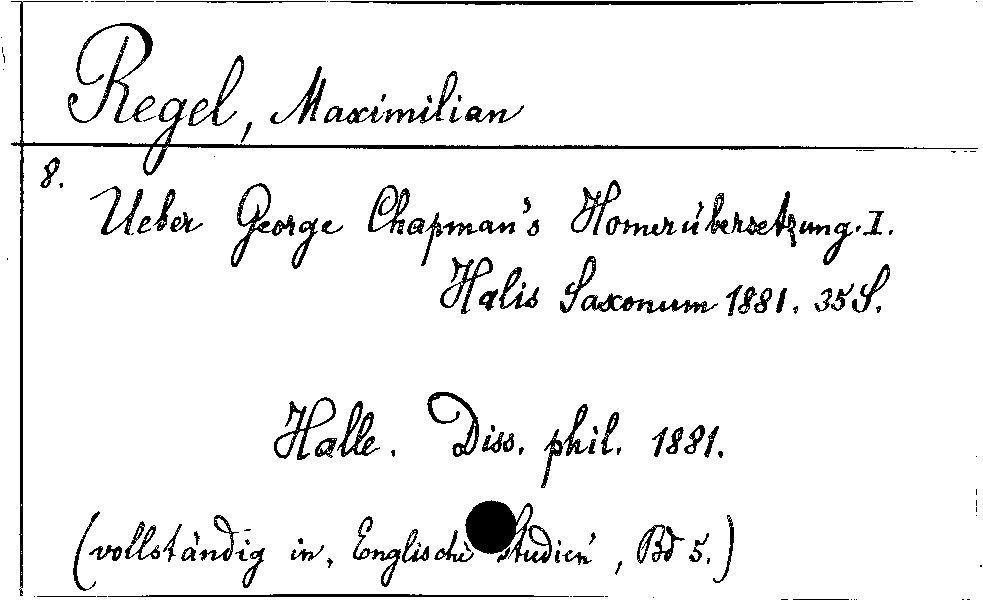 Regel, Maximilian
8.
Ueber George Chapman's Homerübersetzung. I.
Halis Saxonum 1881. 35 S.
Halle. Diss. phil. 1881.
(vollständig in „Englische Studien", Bd 5.)